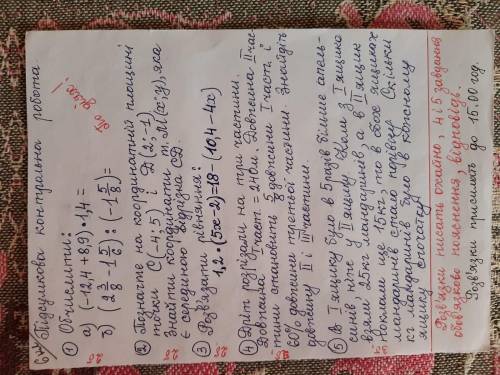 6 кл Підсумкова контрольна робота.
Що удома!
① Обчислити:
а) (-12,4 + 8,9) · 1,4 =
б) (2 3/8 - 1 5/6) : (-1 5/8) =
② Позначте на координатній площині
точки С(-4; 5) і D(2; -1)
Знайти координати т. М(х; у), яка
є серединою відрізка CD.
③ Розв'язати рівняння:
1,2 · (5х-2) = 18 - (10,4 - 4х)
④ Дріт розрізали на три частини.
Довжина І част. = 240м. Довжина ІІ час-
тини становить довжини І част. і
60% довжини третьої частини. Знайдіть
довжину ІІ і ІІІ частини.
⑤ В І ящику було в 5 разів більше апель-
синів, ніж у ІІ ящику. Коли з І ящика
взяли 25кг мандаринів, а в ІІ ящик
поклали ще 15кг, то в обох ящиках
мандаринів стало порівну. Скільки
кг мандаринів було в кожному
ящику спочатку
Розв'язки писати охайно, 4 і 5 завдання
обов'язково пояснення, відповідь.
Розв'язки присилати до 15.00 год.